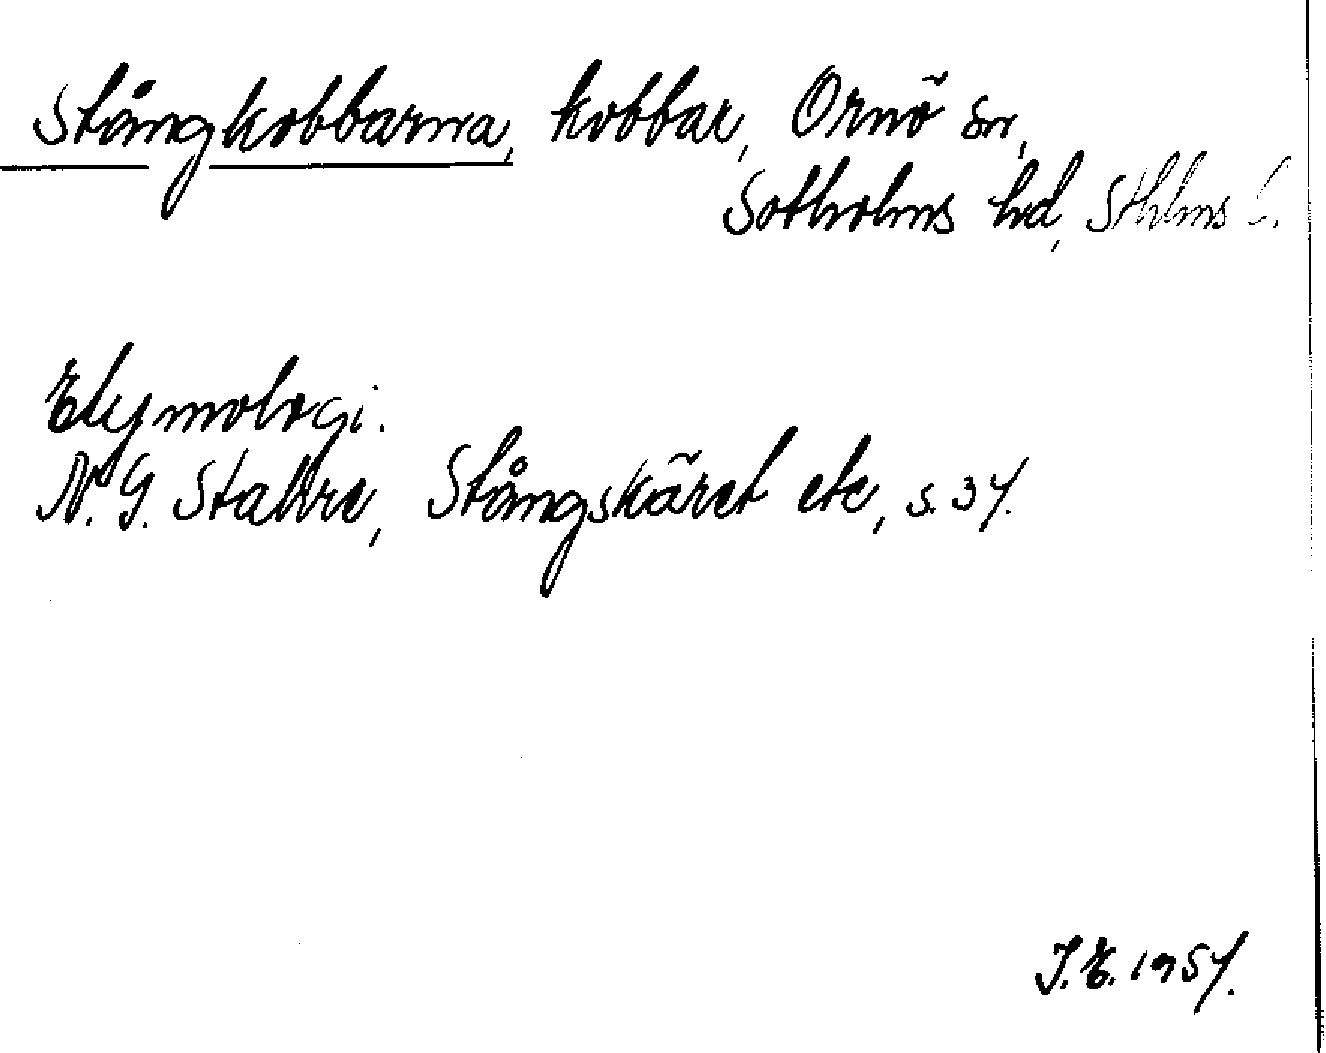 Stångkobbarna, kobbar, Ornö sn,
Sotholms hd, Sthlms l.
Etymologi.
N. G. Stahre, Stångskäret etc, s. 37.
J. E. 1957.